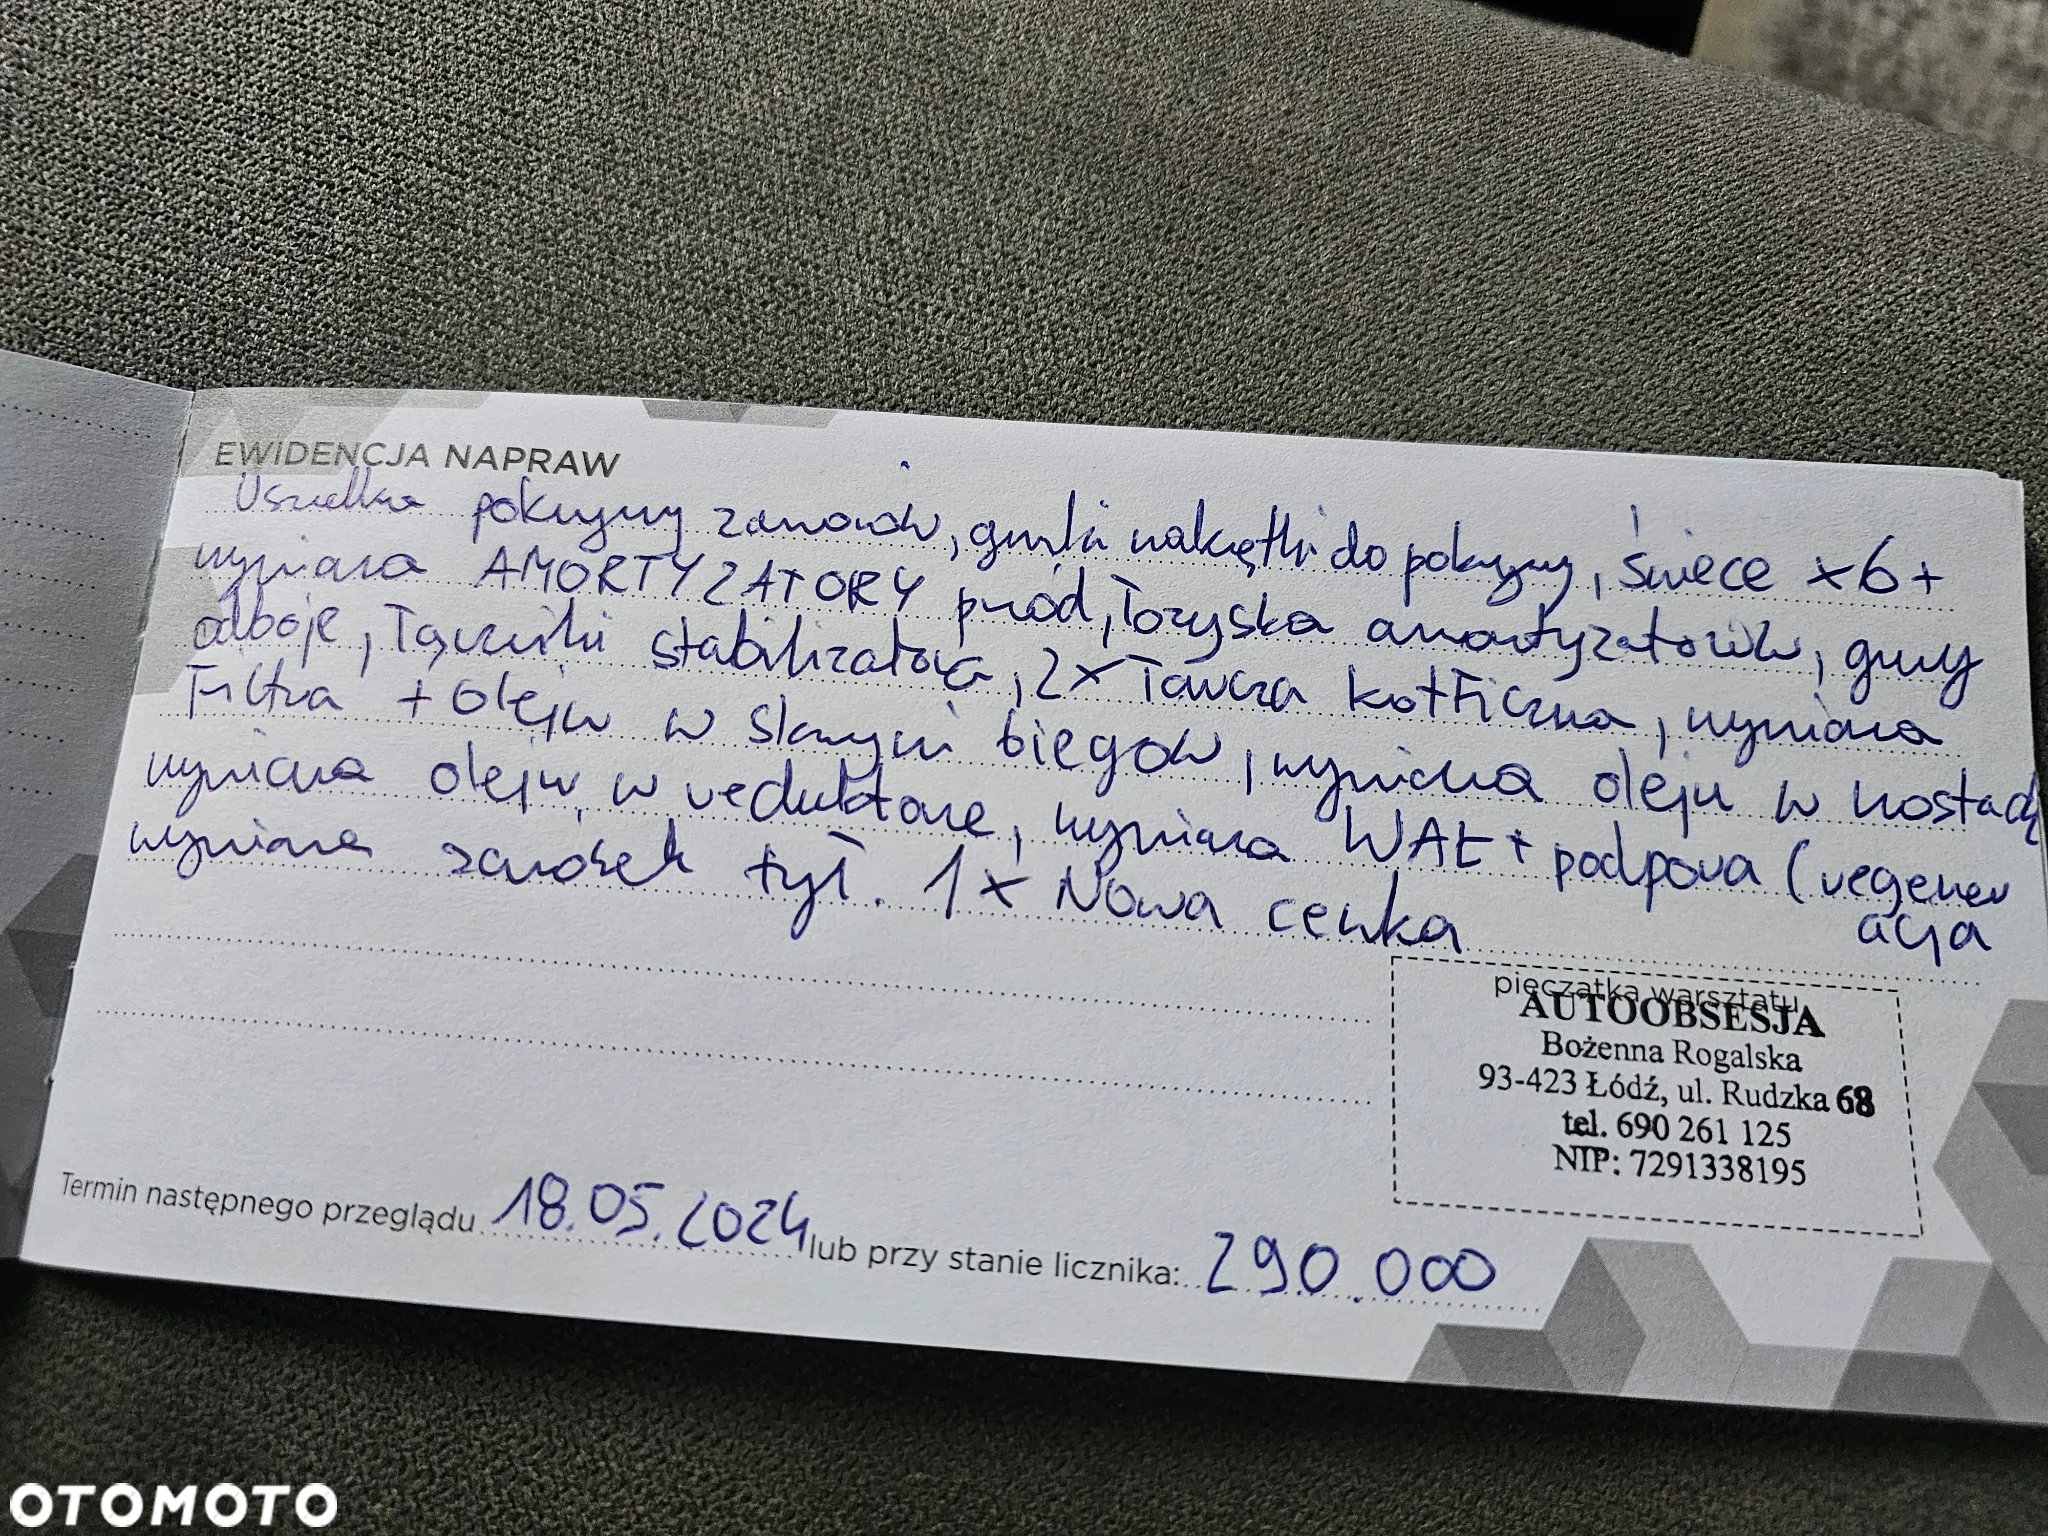 EWIDENCJA NAPRAW
Uszczelka pokrywy zaworów, gumki nakrętki do pokrywy, świece x6+
wymiana AMORTYZATORY przód, Łożyska amortyzatorów, gumy
odboje, Łączniki stabilizatora, 2x Tarcza kotwiczna, wymiana
Filtra + oleju w skrzyni biegów, wymiana oleju w
wymiana oleju w reduktorze, wymiana WAŁ + podpora (regener
acja
wymiana zacisek tył. 1x Nowa cewka
pieczątka warsztatu
AUTOOBSESJA
Bożenna Rogalska
93-423 Łódź, ul. Rudzka 68
tel. 690 261 125
NIP: 7291338195
Termin następnego przeglądu 18.05.2024 lub przy stanie licznika: 290.000
OTOMOTO